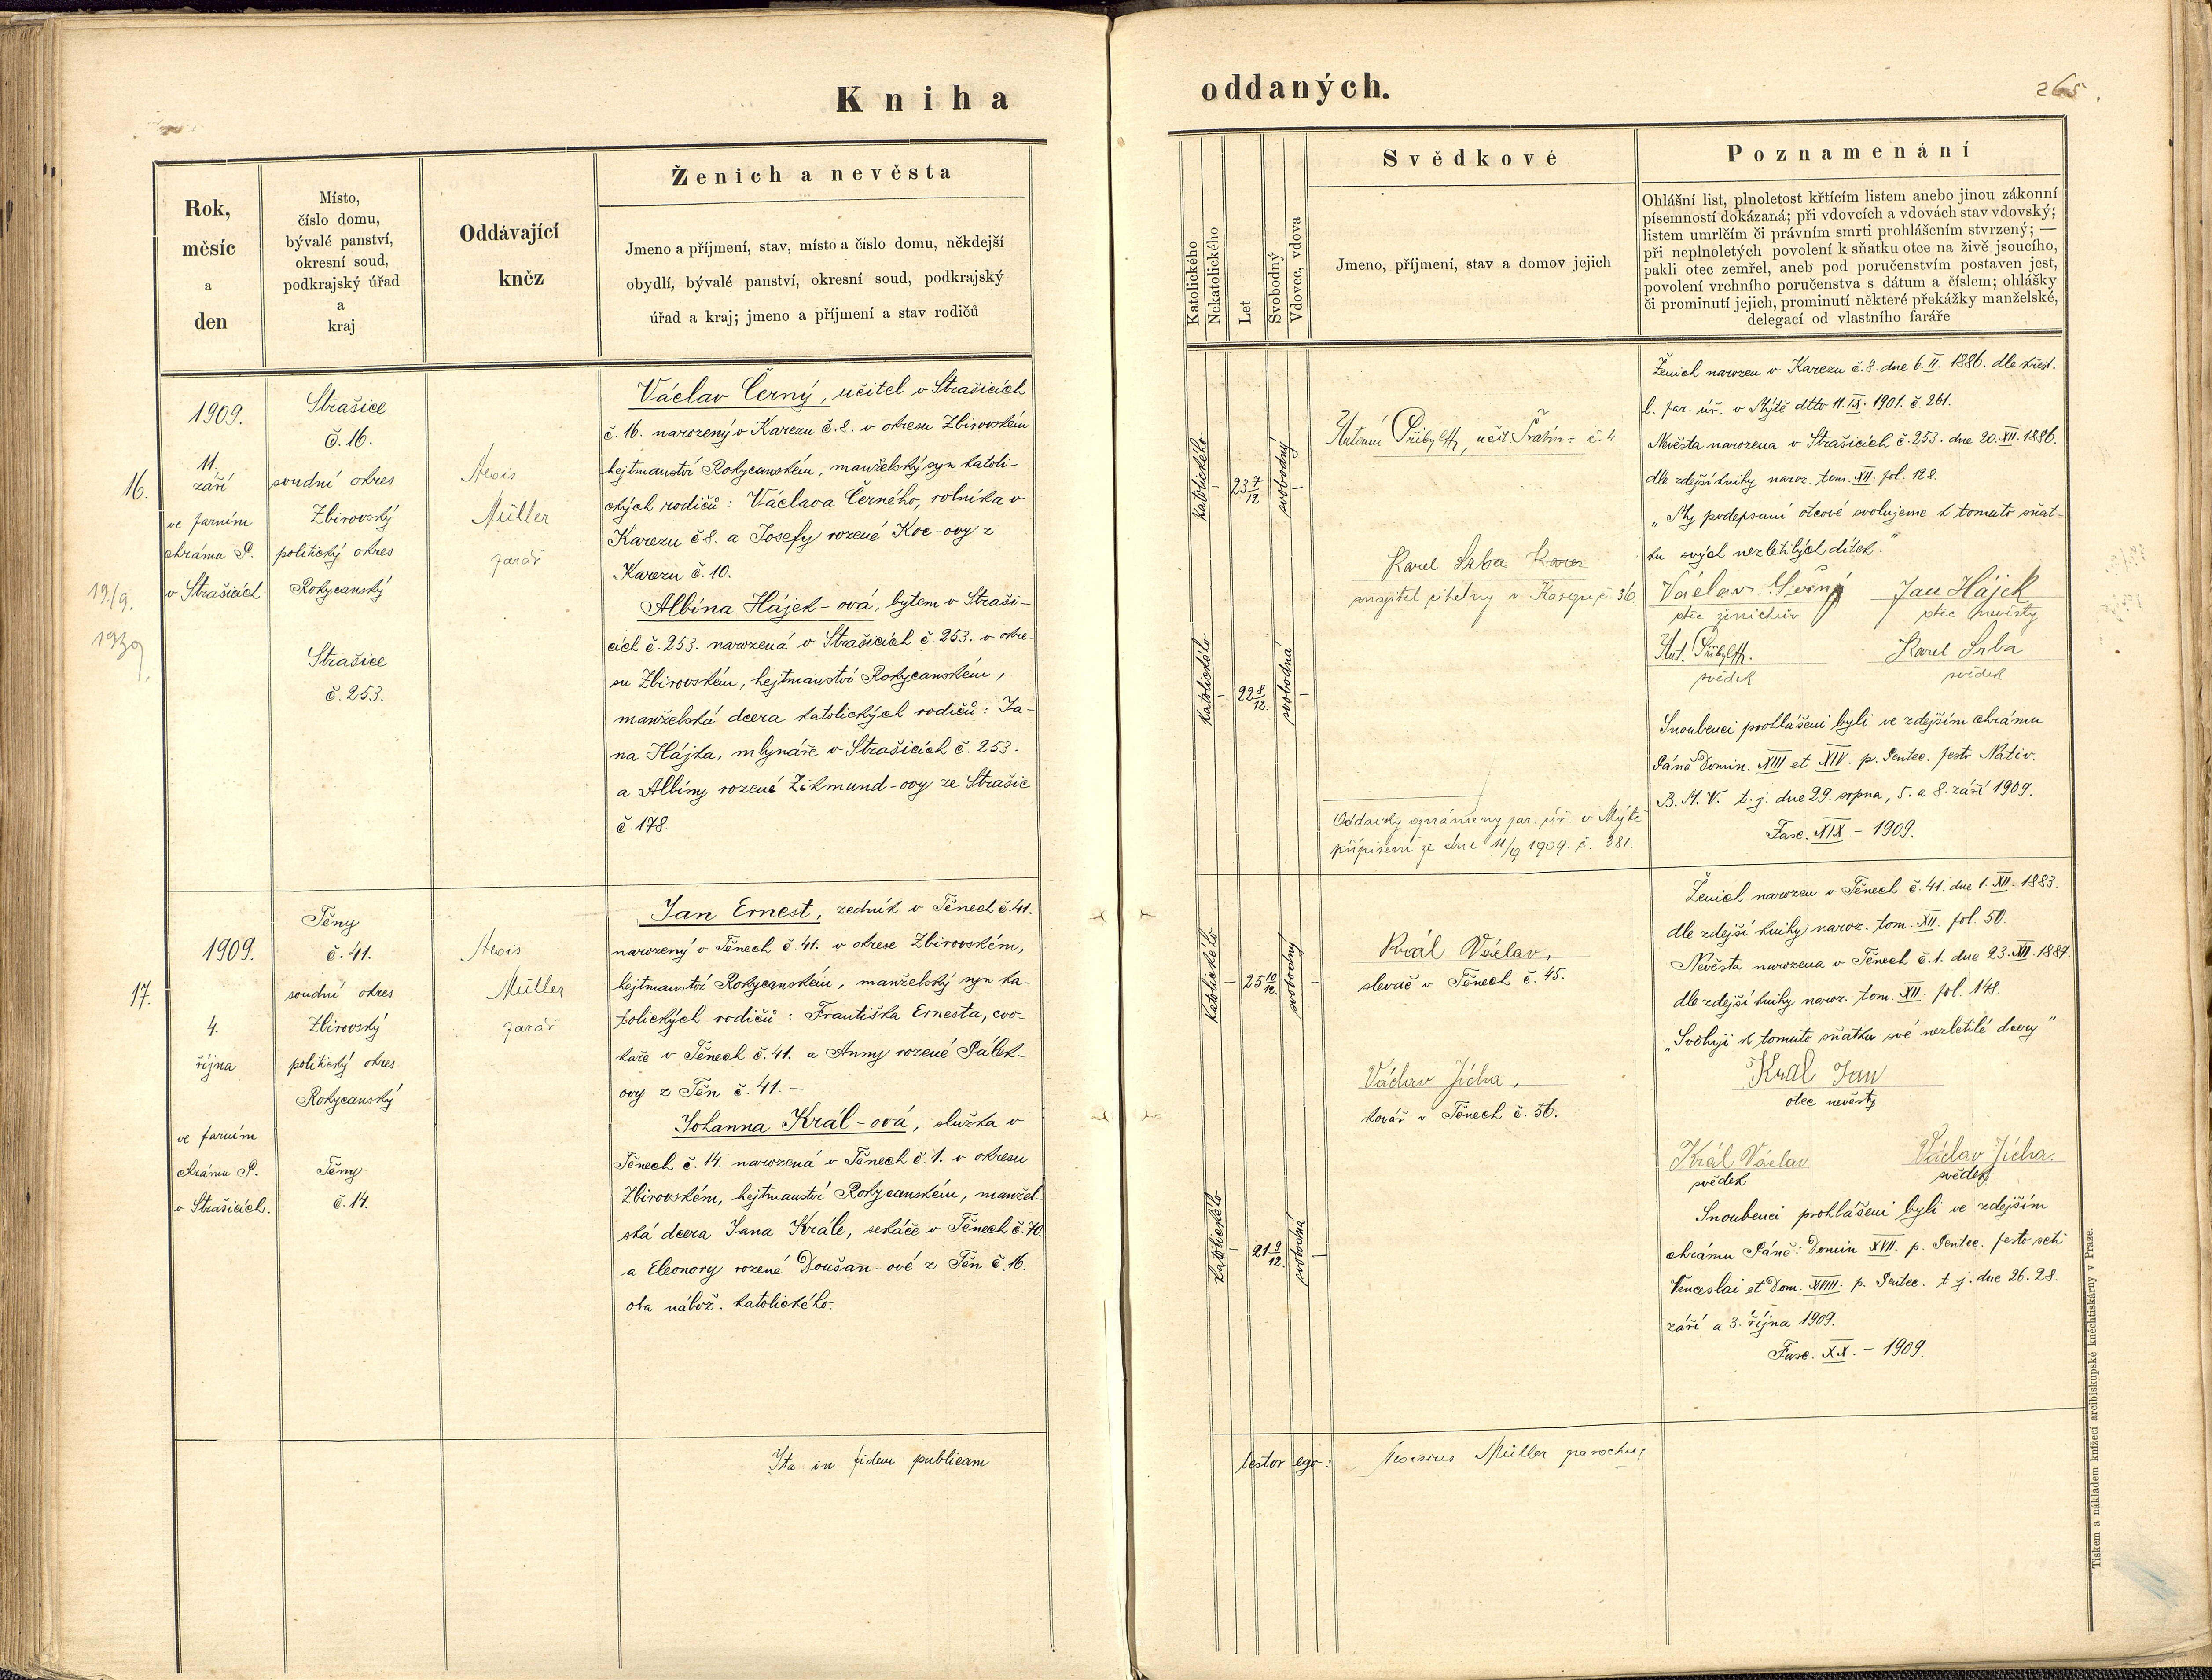 Kniha
oddaných.
265.
Rok,
měsíc
a
den
Místo,
číslo domu,
bývalé panství,
okresní soud,
podkrajský úřad
a
kraj
Oddávající
kněz
Ženich a nevěsta
Jmeno a příjmení, stav, místo a číslo domu, někdejší
obydlí, bývalé panství, okresní soud, podkrajský
úřad a kraj; jmeno a příjmení a stav rodičů
Katolického
Nekatolického
Let
Svobodný
Vdovec, vdova
Svědkové
Jmeno, příjmení, stav a domov jejich
Poznamenání
Ohlášní list, plnoletost křtícím listem anebo jinou zákonní
písemností dokázaná; při vdovcích a vdovách stav vdovský;
listem umrlčím či právním smrti prohlášením stvrzený; —
při neplnoletých povolení k sňatku otce na živě jsoucího,
pakli otec zemřel, aneb pod poručenstvím postaven jest,
povolení vrchního poručenstva s dátum a číslem; ohlášky
či prominutí jejich, prominutí některé překážky manželské,
delegací od vlastního faráře
16.
19/9.
1939
1909.
11.
září
ve farním
chrámu P.
v Strašicích
Strašice
č. 16.
soudní okres
Zbirovský
politický okres
Rokycanský
Strašice
č. 253.
Alois
Müller
farář
Václav Černý, učitel v Strašicích
č. 16. narozený v Karezu č. 8. v okresu Zbirovském
hejtmanství Rokycanském, manželský syn katoli-
ckých rodičů: Václava Černého, rolníka v
Karezu č 8. a Josefy rozené Koc-ovy z
Karezu č. 10.
Albína Hájek-ová, bytem v Straši-
cích č. 253. narozená v Strašicích č. 253. v okre-
su Zbirovském, hejtmanství Rokycanském,
manželská dcera katolických rodičů: Ja-
na Hájka, mlynáře v Strašicích č. 253.
a Albíny rozené Zikmund-ovy ze Strašic
č. 178.
katolického
23 7/12
svobodný
katolického
22 8/12.
svobodná
Přibyl, učit
č. 4
Karel Srba Karez
majitel cihelny v Karezu č. 36.
Oddavky oznámeny far. úř. v Mýtě
přípisem ze dne 11/9 1909. č. 381.
Ženich narozen v Karezu č. 8. dne 6. II. 1886. dle křest.
l. far. úř. v Mýtě dtto 11. IX. 1901. č. 261.
Nevěsta narozena v Strašicích č. 253. dne 20. XII. 1886.
dle zdejší knihy naroz. tom. XII. fol. 128.
„My podepsaní otcové svolujeme k tomuto sňat-
ku svých nezletilých dítek."
Václav Černý Jan Hájek
otec ženichův otec nevěsty
Ant. Přibyl Karel Srba
svědek svědek
Snoubenci prohlášeni byli ve zdejším chrámu
Páně Domin. XIII et XIV. p. Pentec. festo Nativ.
B. M. V. t. j. dne 29. srpna, 5. a 8. září 1909.
Fasc. XIX. - 1909.
17.
1909.
4.
října
ve farním
chrámu P.
v Strašicích.
Těny
č. 41.
soudní okres
Zbirovský
politický okres
Rokycanský
Těny
č. 14.
Alois
Müller
farář
Jan Ernest, zedník v Těnech č. 41.
narozený v Těnech č. 41. v okrese Zbirovském,
hejtmanství Rokycanském, manželský syn ka-
tolických rodičů: Františka Ernesta, cvo-
kaře v Těnech č. 41. a Anny rozené Pálek-
ovy z Těn č. 41. -
Johanna Král-ová, služka v
Těnech č. 14. narozená v Těnech č. 1. v okresu
Zbirovském, hejtmanství Rokycanském, manžel-
ská dcera Jana Krále, sekáče v Těnech č. 70.
a Eleonory rozené Doušan-ové z Těn č. 16.
oba nábož. katolického.
katolického
25 10/12.
svobodný
katolického
21 9/12.
svobodná
Král Václav,
slevač v Těnech č. 45.
Václav Jícha,
kovář v Těnech č. 56.
Ženich narozen v Těnech č. 41. dne 1. XII. 1883.
dle zdejší knihy naroz. tom. XII. fol. 50.
Nevěsta narozena v Těnech č. 1. dne 23. XII. 1887.
dle zdejší knihy naroz. tom. XII. fol. 148.
„Svoluji k tomuto sňatku své nezletilé dcery"
Král Jan
otec nevěsty
Král Václav Václav Jícha.
svědek svědek
Snoubenci prohlášeni byli ve zdejším
chrámu Páně: Domin XVII. p. Pentec. festo scti
Venceslai et Dom. XVIII. p. Pentec. t. j. dne 26. 28.
září a 3. října 1909.
Fasc. XX. - 1909.
Ita in fidem publicam testor ego: Aloisius Müller parochus
Tiskem a nákladem knížecí arcibiskupské knihtiskárny v Praze.